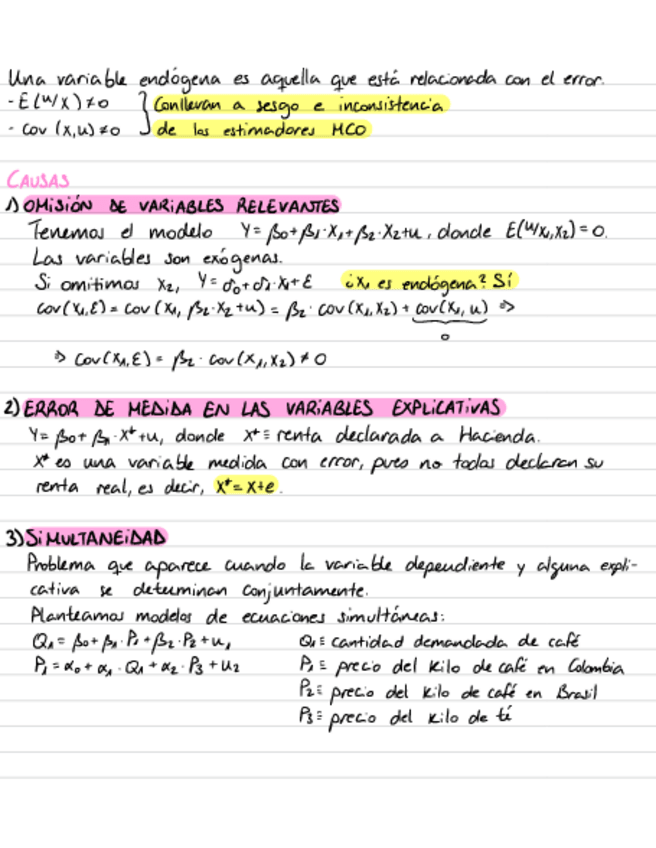 Una variable endógena es aquella que está relacionada con el error.
- E(u/x) ≠ 0 } Conllevan a sesgo e inconsistencia
- Cov (x,u) ≠ 0 de los estimadores MCO
CAUSAS
1) OMISIÓN DE VARIABLES RELEVANTES
Tenemos el modelo Y = β0 + β1·X1 + β2·X2 + u, donde E(u/x1,x2) = 0.
Las variables son exógenas.
Si omitimos X2, Y = δ0 + δ1·X1 + ε ¿X1 es endógena? Sí
Cov(X1,ε) = Cov(X1, β2·X2 + u) = β2·Cov(X1,X2) + Cov(X1,u) =>
0
=> Cov(X1,ε) = β2·Cov(X1,X2) ≠ 0
2) ERROR DE MEDIDA EN LAS VARIABLES EXPLICATIVAS
Y = β0 + β1·X* + u, donde X* ≡ renta declarada a Hacienda.
X* es una variable medida con error, pues no todos declaran su
renta real, es decir, X* = X + e.
3) SIMULTANEIDAD
Problema que aparece cuando la variable dependiente y alguna expli-
cativa se determinan conjuntamente.
Planteamos modelos de ecuaciones simultáneas:
Q1 = β0 + β1·P1 + β2·P2 + u1 Q1 ≡ cantidad demandada de café
P1 = α0 + α1·Q1 + α2·P3 + u2 P1 ≡ precio del kilo de café en Colombia
P2 ≡ precio del kilo de café en Brasil
P3 ≡ precio del kilo de té